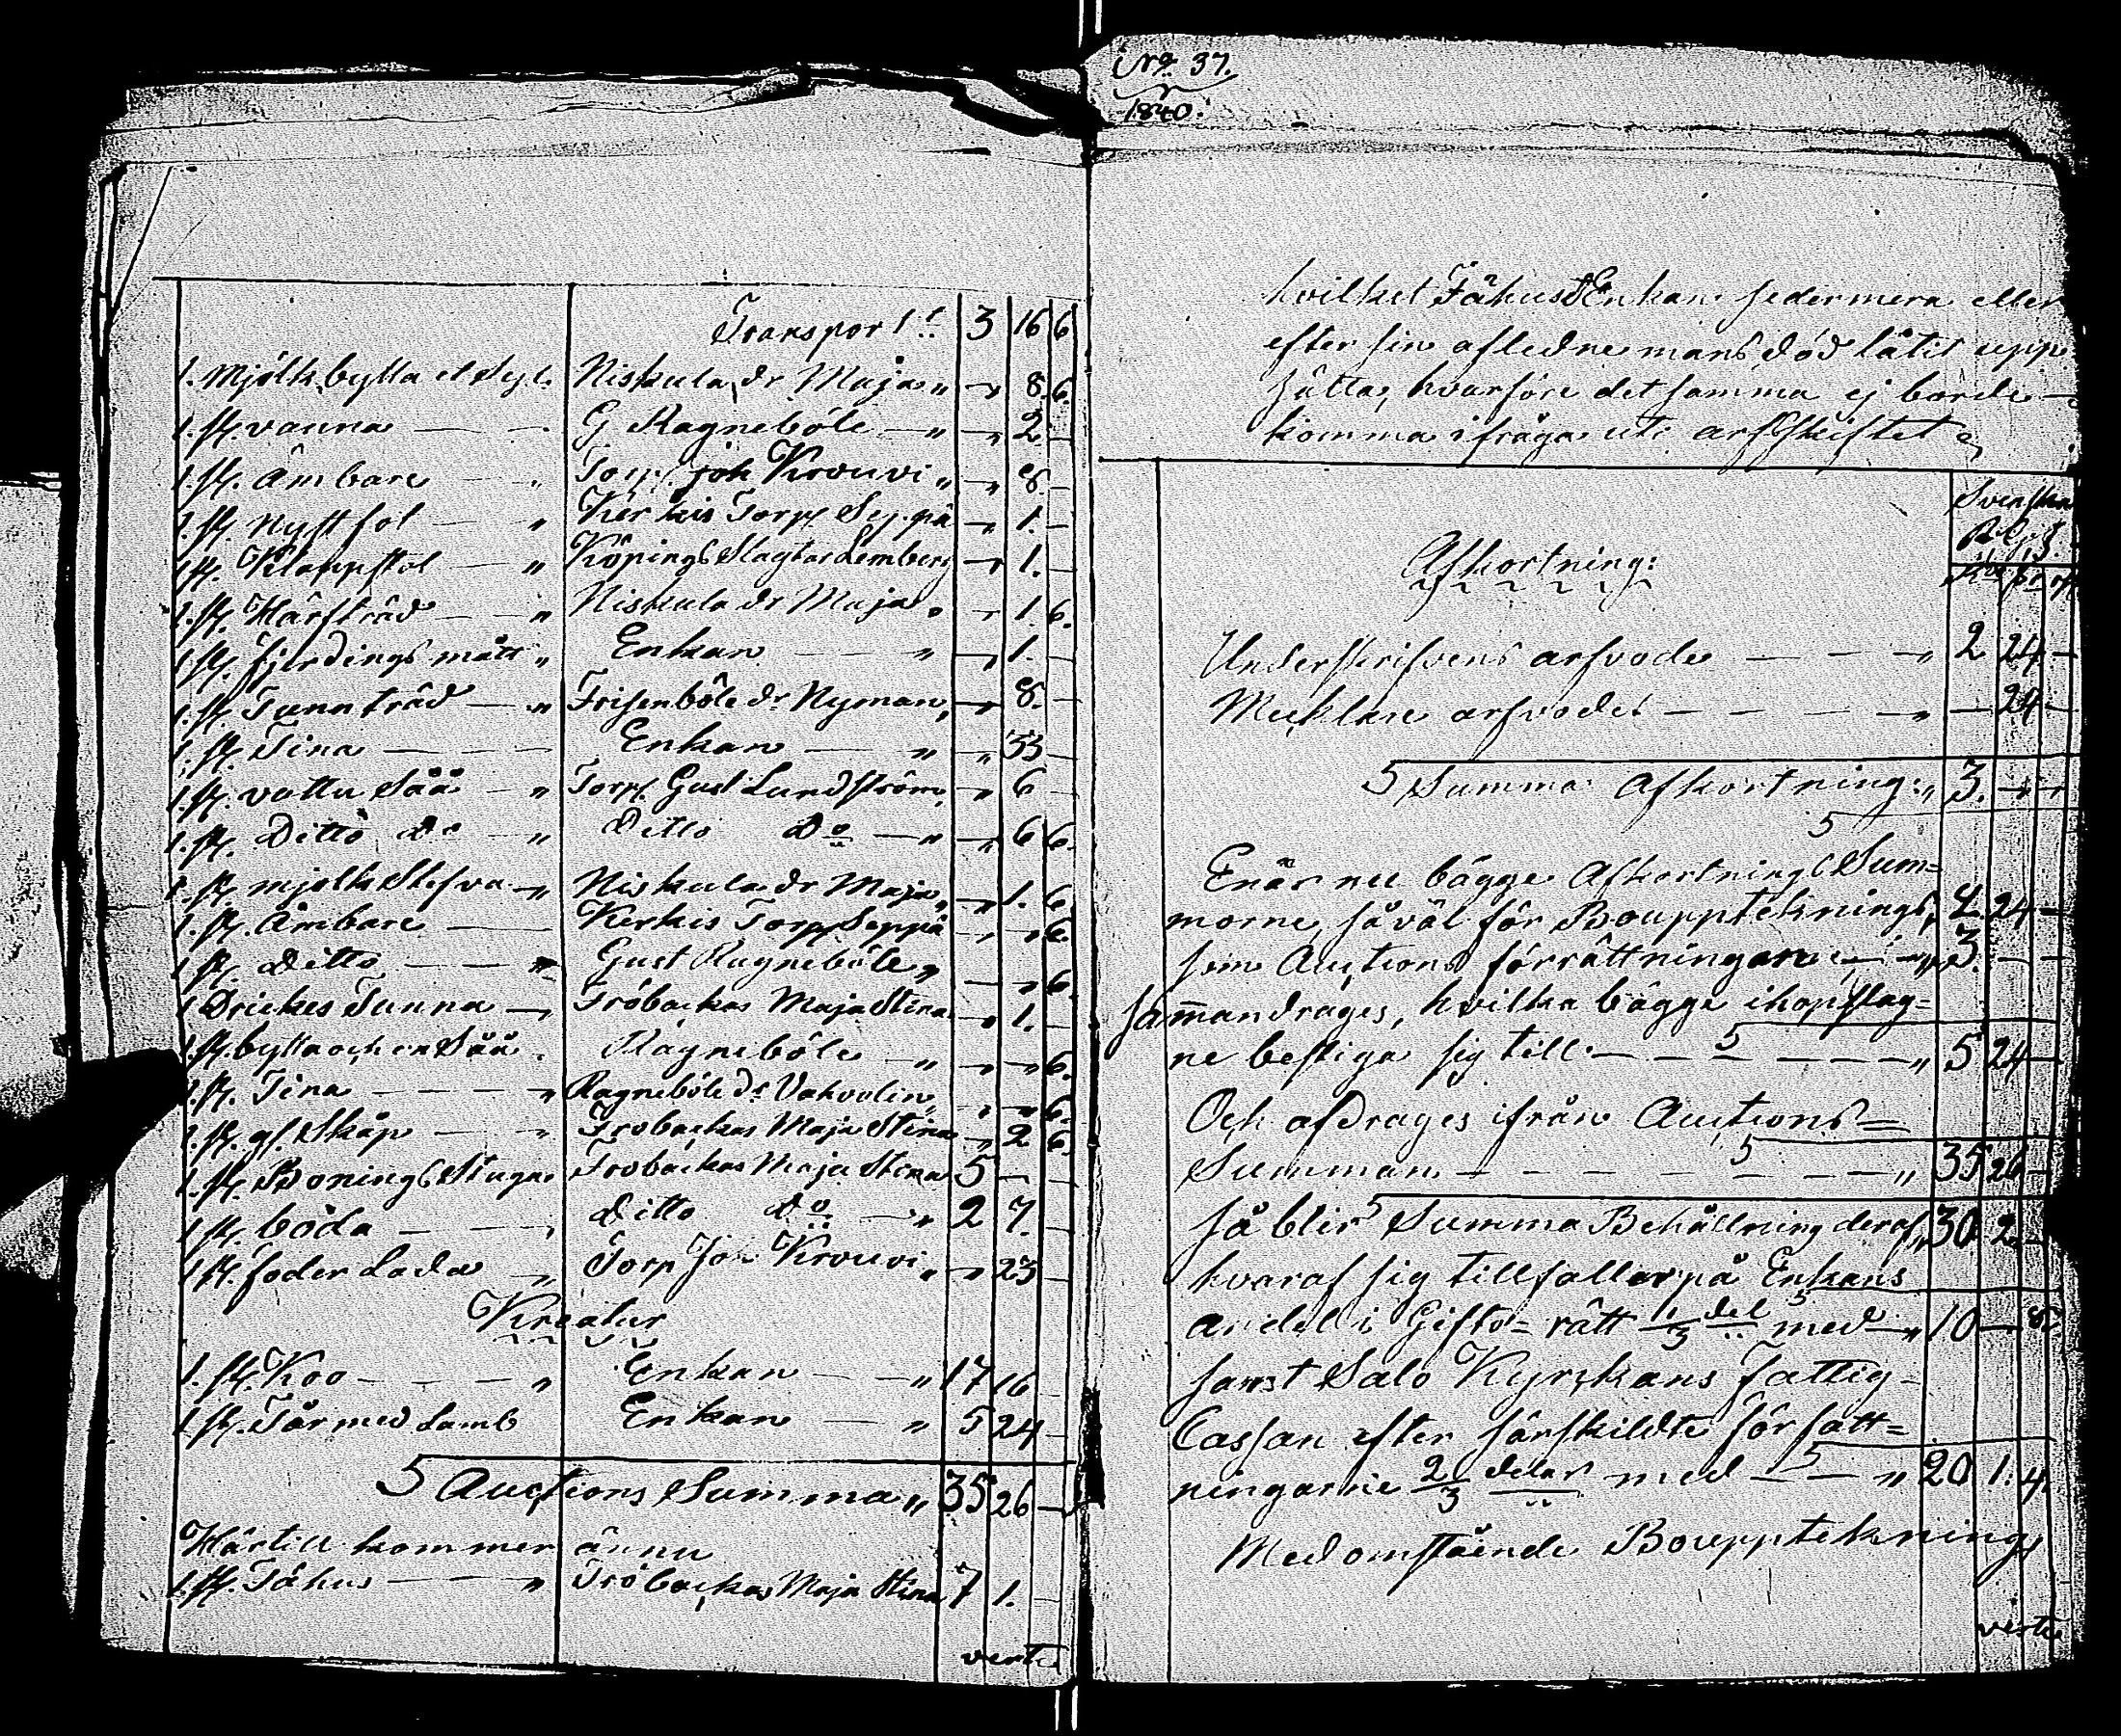 Transport " 3 16 6
1. Mjölk bytta et Syl. Niskula dr Maja " " 8. 6.
1. st. vanna — G Ragneböle — " " 2 —
1. st. Ämbare — " Torp. Joh Krouvi " " 8. —
1. st. nystfol — " Kerkis Torp. Seppä " 1. —
1 st. Klappstol — " Köpings Slagtar Lemberg " 1. —
1. st. Hårstråd — " Niskula dr Maja " " 1. 6.
1 st. fjerdings mått " Enkan — " " 1. —
1. st. Tunn tråd — " Frisenböle dr Nyman " " 8. —
1. st. Tina — — Enkan — " " 33 —
1. st. vattu Såå — " Torp. Gust Lundström " " 6 —
1. st. Ditto Do — " Ditto Do — " " 6 6.
1 st. mjolk Stefva — " Niskula dr Maja " " 1. 6.
1. st. Ämbare — Kerkis Torp Seppä " " 6.
1 st. Ditto — " Gust Ragneböle " — " 6.
1 Drickes Tunna — " Tröbackas Maja Stina " 1. —
1. st. bytta och en Såå . Ragneböle — " " " 6.
1. st. Tina — — " Ragneböle dr Vahvolin " " " 6.
1. st. gl Skåp — " Trobackas Maja Stina " 2 6.
1. st. Bonings Stuga Trobackas Maja Stina 5 — —
1 st. boda — — " Ditto Do — " 2 7. —
1 st. foder Lada — " Torp Joh Krouvi " " 23 —
Kreatur
1. st. Koo — — — " Enkan — — " 17 16 —
1 st. Får med Lamb Enkan — " 5 24 —
S Auctions Summa " 35 26 —
Härtill kommer ännu
1. st. Fähus — — " Tröbackas Maja Stina 7 1. —
verte
No 37.
1840.
hvilket Fähus Enkan sedermera eller
efter sin afledne mans död låtit upp
sätta, hvarföre det samma ej borde —
komma ifråga uti arfskiftet
Svenska
Rgs
Afkortning:
Underskrifvens arfvode — — — " 2 24 —
Mecklare arfvodet — — — — " — 24 —
S Summa Afkortning: " 3. — —
Enär nu bägge Afkortnings Sum=
morne, så väl för Bouppteknings, 2. 24 —
som Auctions förrättningarne — " 3. — —
sammandrages, hvilka bägge ihopslag=
ne bestiga sig till — — S — — — " 5 24 —
Och afdrages ifrån Auctions=
Summan — — — — S — — " 35 26 —
så blir S Summa Behållning deraf " 30 2 —
hvaraf sig tillfaller på Enkans
andel i Gifto= rätt 1/3 del S med — " 10 — 8
samt Salo Kyrckans Fattig-
Cassan efter särskildte författ=
ningarne 2/3 delar med — S — " 20 1. 4.
Med omstående Bouppteknings
verte